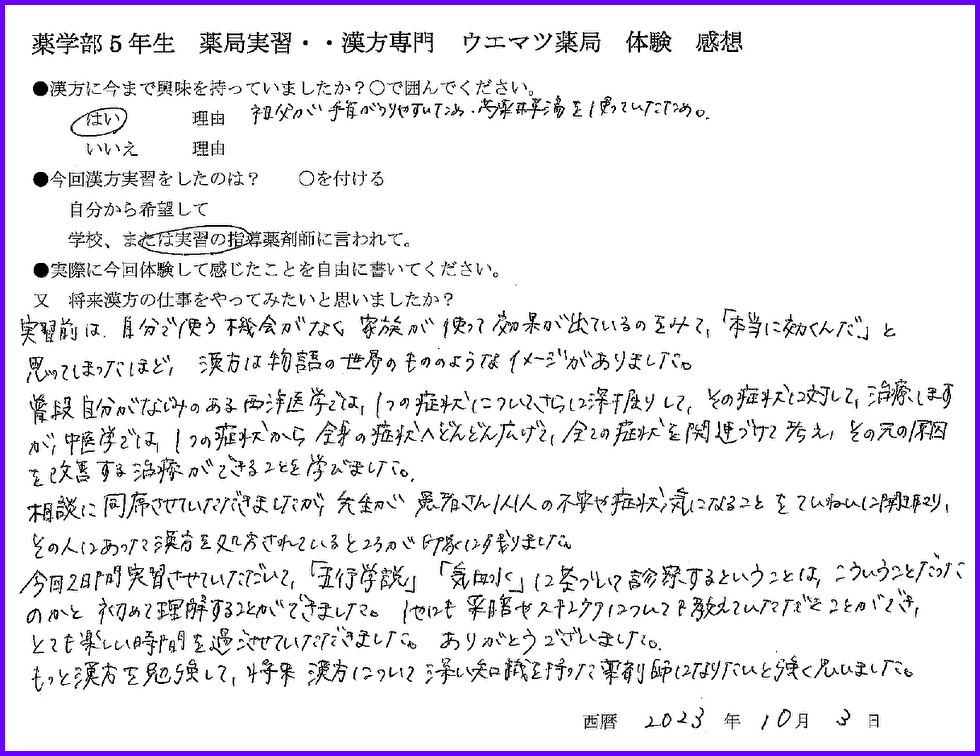 薬学部5年生　薬局実習・・漢方専門　ウエマツ薬局　体験　感想
●漢方に今まで興味を持っていましたか？○で囲んでください。
はい　理由　祖父が手首がつりやすいため、芍薬甘草湯を使っていたため。
いいえ　理由
●今回漢方実習をしたのは？　○を付ける
自分から希望して
学校、または実習の指導薬剤師に言われて。
●実際に今回体験して感じたことを自由に書いてください。
又　将来漢方の仕事をやってみたいと思いましたか？
実習前は、自分で使う機会がなく、家族が使って効果が出ているのをみて、「本当に効くんだ」と
思ってしまったほど、漢方は物語の世界のもののようなイメージがありました。
普段自分がなじみのある西洋医学では、1つの症状についてさらに深掘りして、その症状に対して、治療しますが、
中医学では、1つの症状から全身の症状へどんどん広げて、全ての症状を関連づけて考え、その元の原因
を改善する治療ができることを学びました。
相談に同席させていただきましたが、先生が患者さん1人1人の不安や症状、気になることをていねいに聞き取り、
その人にあった漢方を処方されているところが印象に残りました。
今回2日間実習させていただいて、「五行学説」「気血水」に基づいて診察するということは、こういうことだった
のかと初めて理解することができました。他にも薬膳やスキンケアについても教えていただくことができ、
とても楽しい時間を過ごさせていただきました。ありがとうございました。
もっと漢方を勉強して、将来漢方について深い知識を持った薬剤師になりたいと強く思いました。
西暦　2023年　10月　3日